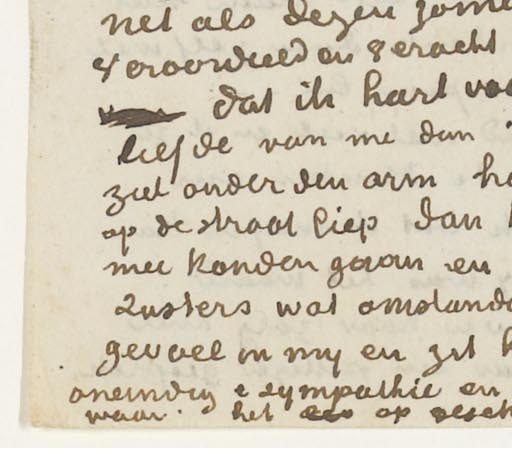 net als dezen zome
veroordeeld en veracht
dat ik hart voo
liefde van me dan
zat onder den arm ha
op de straat liep dan
mee konden gaan en
zusters wat omstand
gevoel in my en zit h
oneindig e sympathie en
waar. het op gesch